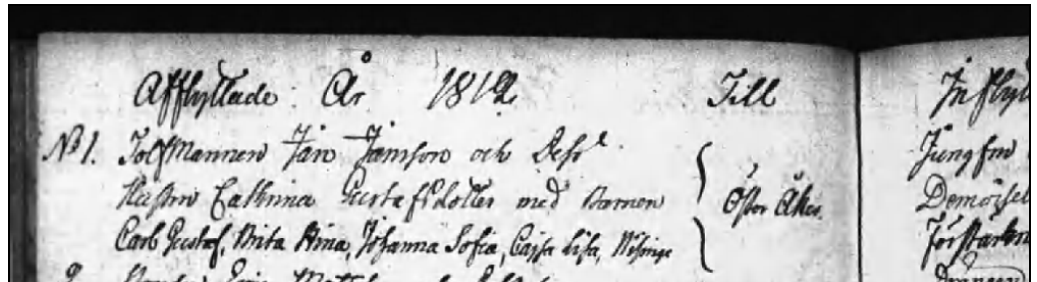 Afflyttade År 1812. Till
No 1. Tolfmannen Jan Jansson och Dess
Hustru Cathrina Gustafsdotter med Barnen
Öster Åker.
Carl Gustaf, Brita Stina, Johanna Sofia, Cajsa Lisa,
Inflyt
Jungfru
Demoisel